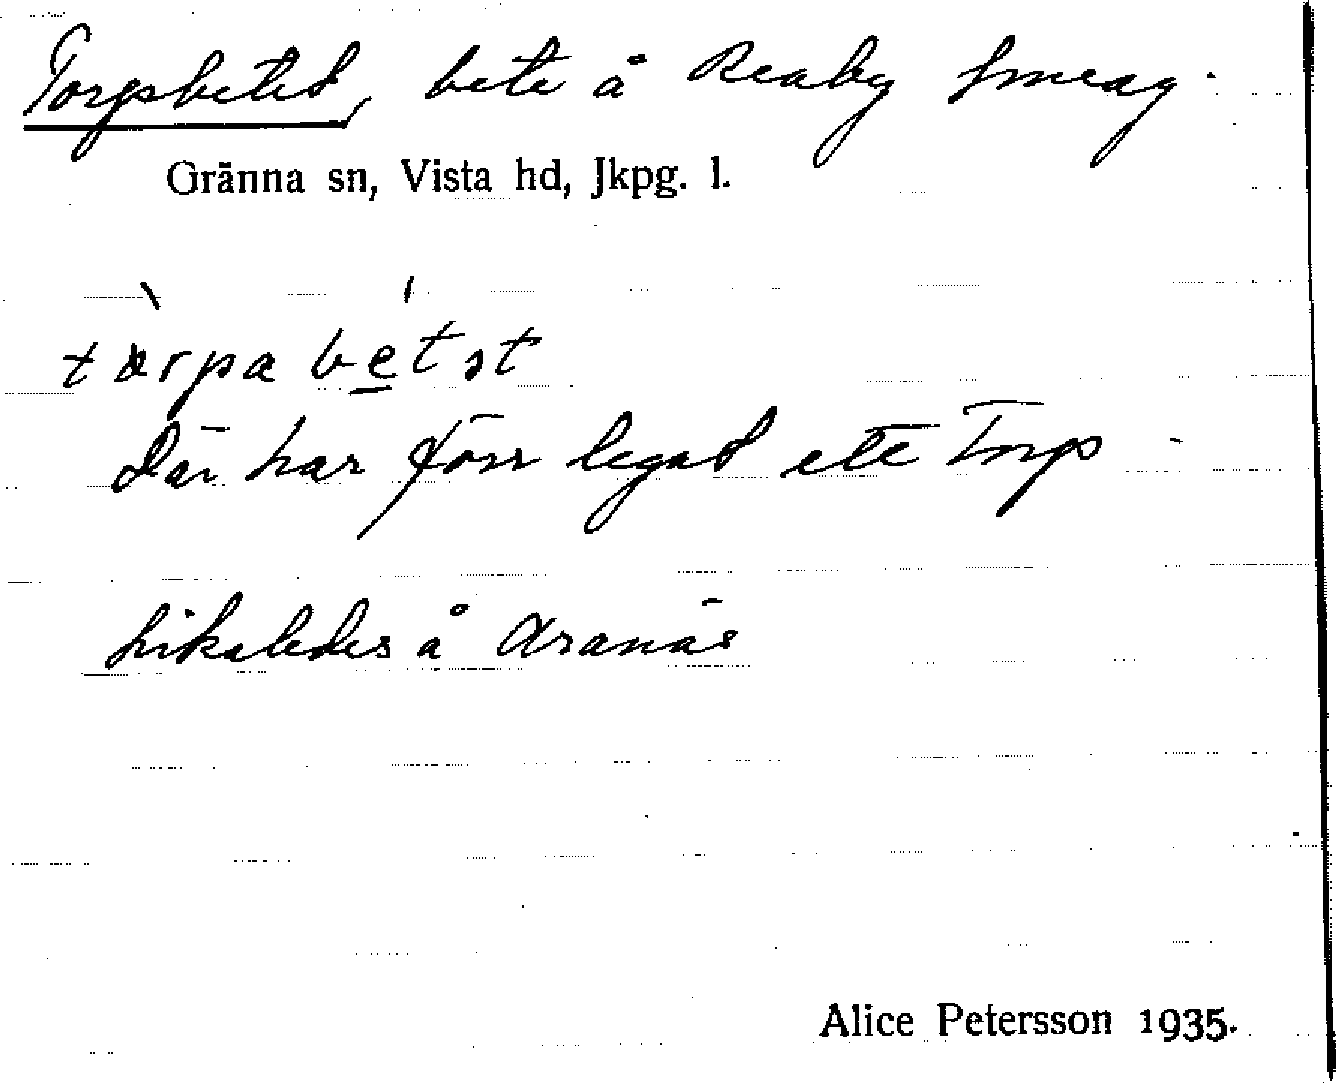 Torpsbetet, bete å Reaby Smeag.
Gränna sn, Vista hd, Jkpg. l.
Där har förr legat ett Torp -
Likaledes å Aranäs
Alice Petersson 1935.